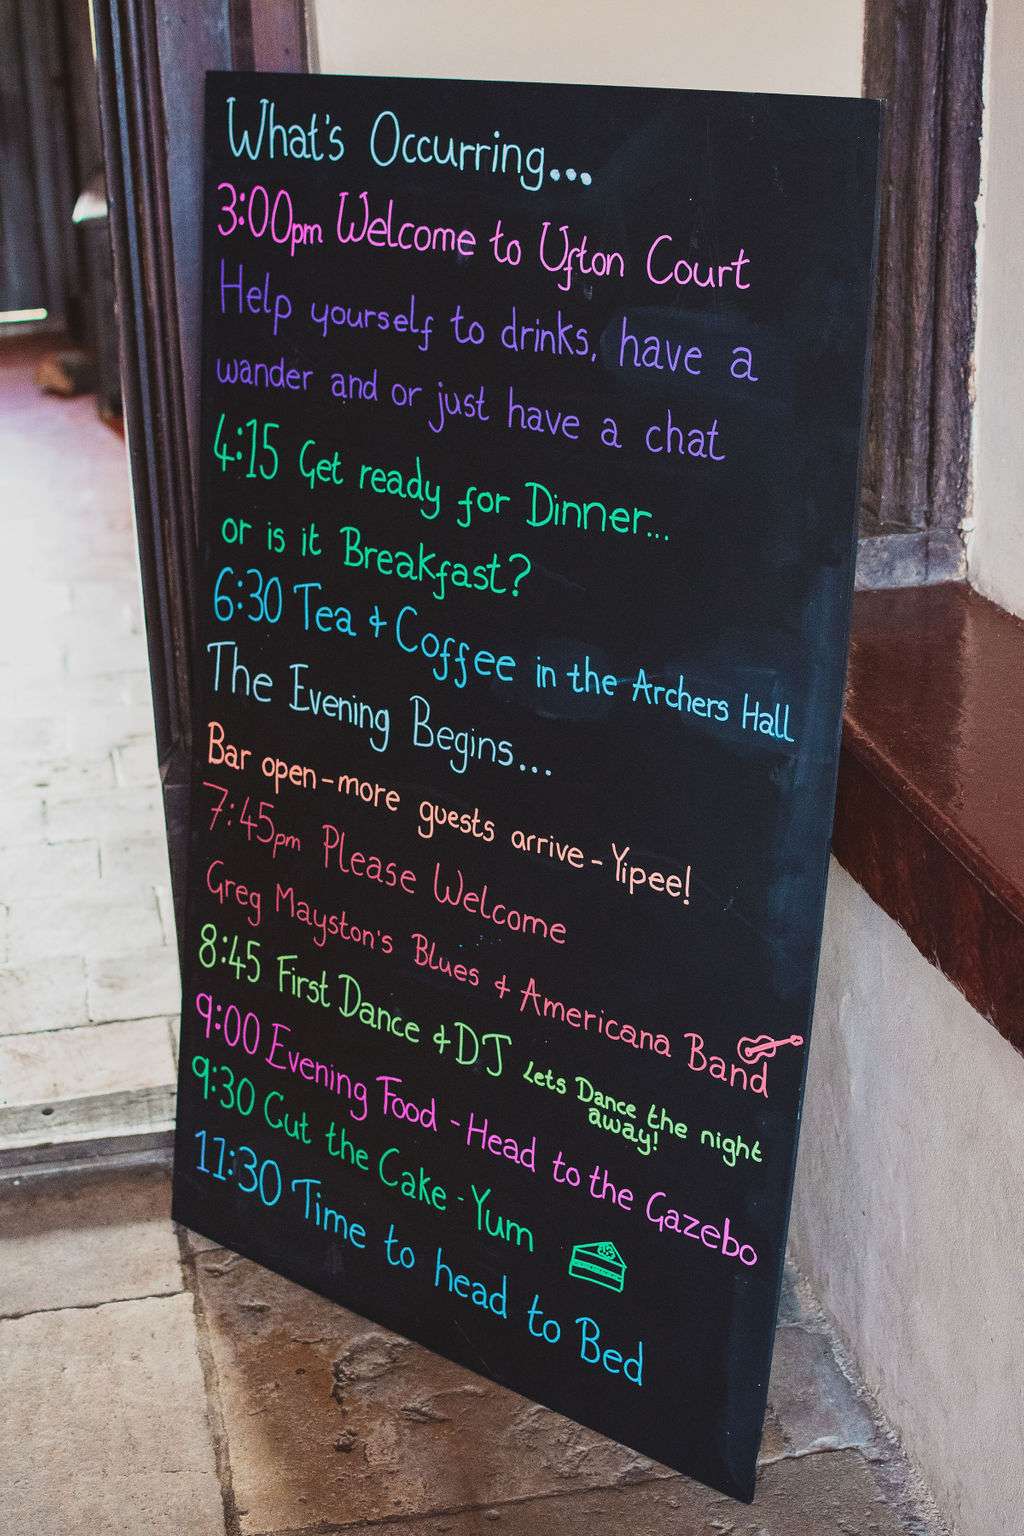 What's Occurring...
3:00pm Welcome to Ufton Court
Help yourself to drinks, have a
wander and or just have a chat
4:15 Get ready for Dinner...
or is it Breakfast?
6:30 Tea & Coffee in the Archers Hall
The Evening Begins...
Bar open - more guests arrive - Yipee!
7:45pm Please Welcome
Greg Mayston's Blues & Americana Band
8:45 First Dance & DJ Lets Dance the night
away!
9:00 Evening Food - Head to the Gazebo
9:30 Cut the Cake - Yum
11:30 Time to head to Bed